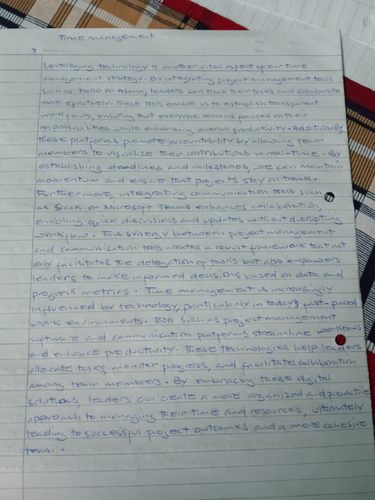 Time management
Leveraging technology is another vital aspect of our time
management strategy. By integrating project management tools
such as Trello or Asana, leaders can track their tasks and collaborate
more effectively. These tools enable us to establish transparent
workflows, ensuring that everyone remains focused on their
responsibilities while enhancing overall productivity. Additionally
these platforms promote accountability by allowing team
members to visualize their contributions in real time. By
establishing deadlines and milestones, we can maintain
momentum and ensure that projects stay on track.
Furthermore, integrating communication tools such
as Slack or Microsoft Teams enhances collaboration,
enabling quick discussions and updates without disrupting
workflow. This synergy between project management
and communication tools creates a robust framework that not
only facilitates the delegation of tasks but also empowers
leaders to make informed decisions based on data and
progress metrics. Time management is increasingly
influenced by technology, particularly in today's fast-paced
work environments. Tools such as project management
software and communication platforms streamline workflows
and enhance productivity. These technologies help leaders
allocate tasks, monitor progress, and facilitate collaboration
among team members. By embracing these digital
solutions, leaders can create a more organized and proactive
approach to managing their time and resources, ultimately
leading to successful project outcomes and a more cohesive
team.